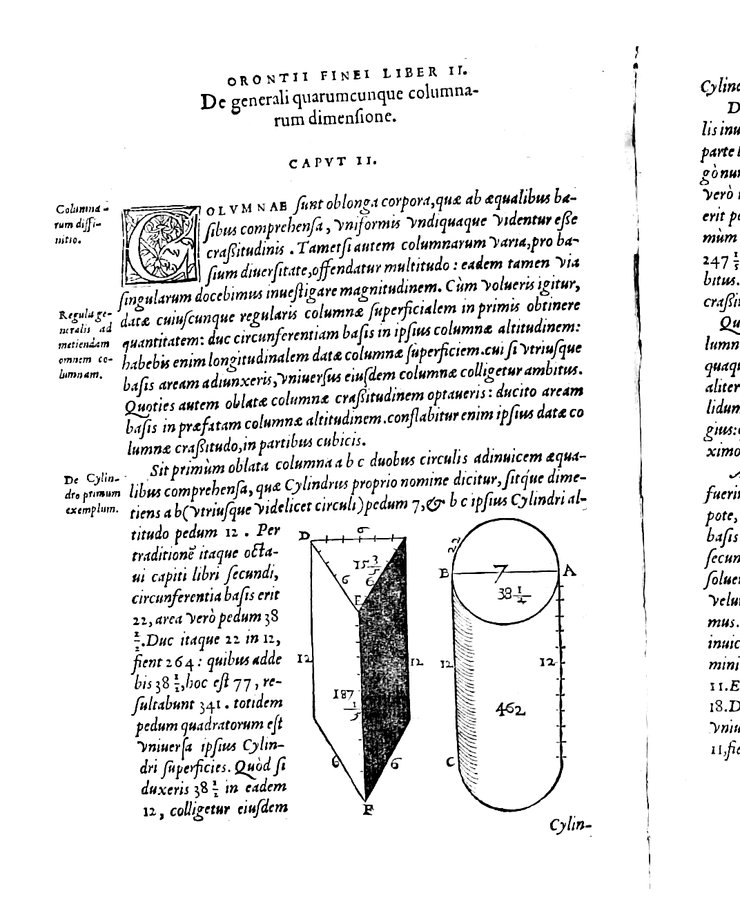 ORONTII FINEI LIBER II.
De generali quarumcunque columna-
rum dimenſione.
CAPVT II.
Columna-
rum diffi-
nitio.
COLVMNAE ſunt oblonga corpora, quæ ab æqualibus ba-
ſibus comprehenſa, vniformis vndiquaque videntur eſſe
craßitudinis. Tametſi autem columnarum varia, pro ba-
ſium diuerſitate, offendatur multitudo: eadem tamen via
ſingularum docebimus inueſtigare magnitudinem. Cùm volueris igitur,
Regula ge-
neralis ad
metiendam
omnem co-
lumnam.
datæ cuiuſcunque regularis columnæ ſuperficialem in primis obtinere
quantitatem: duc circunferentiam baſis in ipſius columnæ altitudinem:
habebis enim longitudinalem datæ columnæ ſuperficiem. cui ſi vtriuſque
baſis aream adiunxeris, vniuerſus eiuſdem columnæ colligetur ambitus.
Quoties autem oblatæ columnæ craßitudinem optaueris: ducito aream
baſis in præfatam columnæ altitudinem. conflabitur enim ipſius datæ co
lumnæ craßitudo, in partibus cubicis.
De Cylin-
dro primum
exemplum.
Sit primùm oblata columna a b c duobus circulis adinuicem æqua-
libus comprehenſa, quæ Cylindrus proprio nomine dicitur, ſitq́ue dime-
tiens a b (vtriuſque videlicet circuli) pedum 7, & b c ipſius Cylindri al-
titudo pedum 12. Per
traditionẽ itaque octa-
ui capiti libri ſecundi,
circunferentia baſis erit
22, area verò pedum 38
1/2. Duc itaque 22 in 12,
fient 264: quibus adde
bis 38 1/2, hoc eſt 77, re-
ſultabunt 341. totidem
pedum quadratorum eſt
vniuerſa ipſius Cylin-
dri ſuperficies. Quòd ſi
duxeris 38 1/2 in eadem
12, colligetur eiuſdem
D
6
15 3/5
6
6
E
12
12
187
1/5
6
6
F
22
B
7
A
38 1/2
12
12
462
C
Cylin-
Cylind
D
lis inu
parte l
gònu
verò i
erit pe
mùm
247 1/5
bitus.
craßi
Qu
lumn
quaq
aliter
lidum
gius:
ximo
fuerin
pote,
baſis
ſecun
ſoluen
velu
mus.
inuic
mini
11. E
18. D
vniu
11, fie